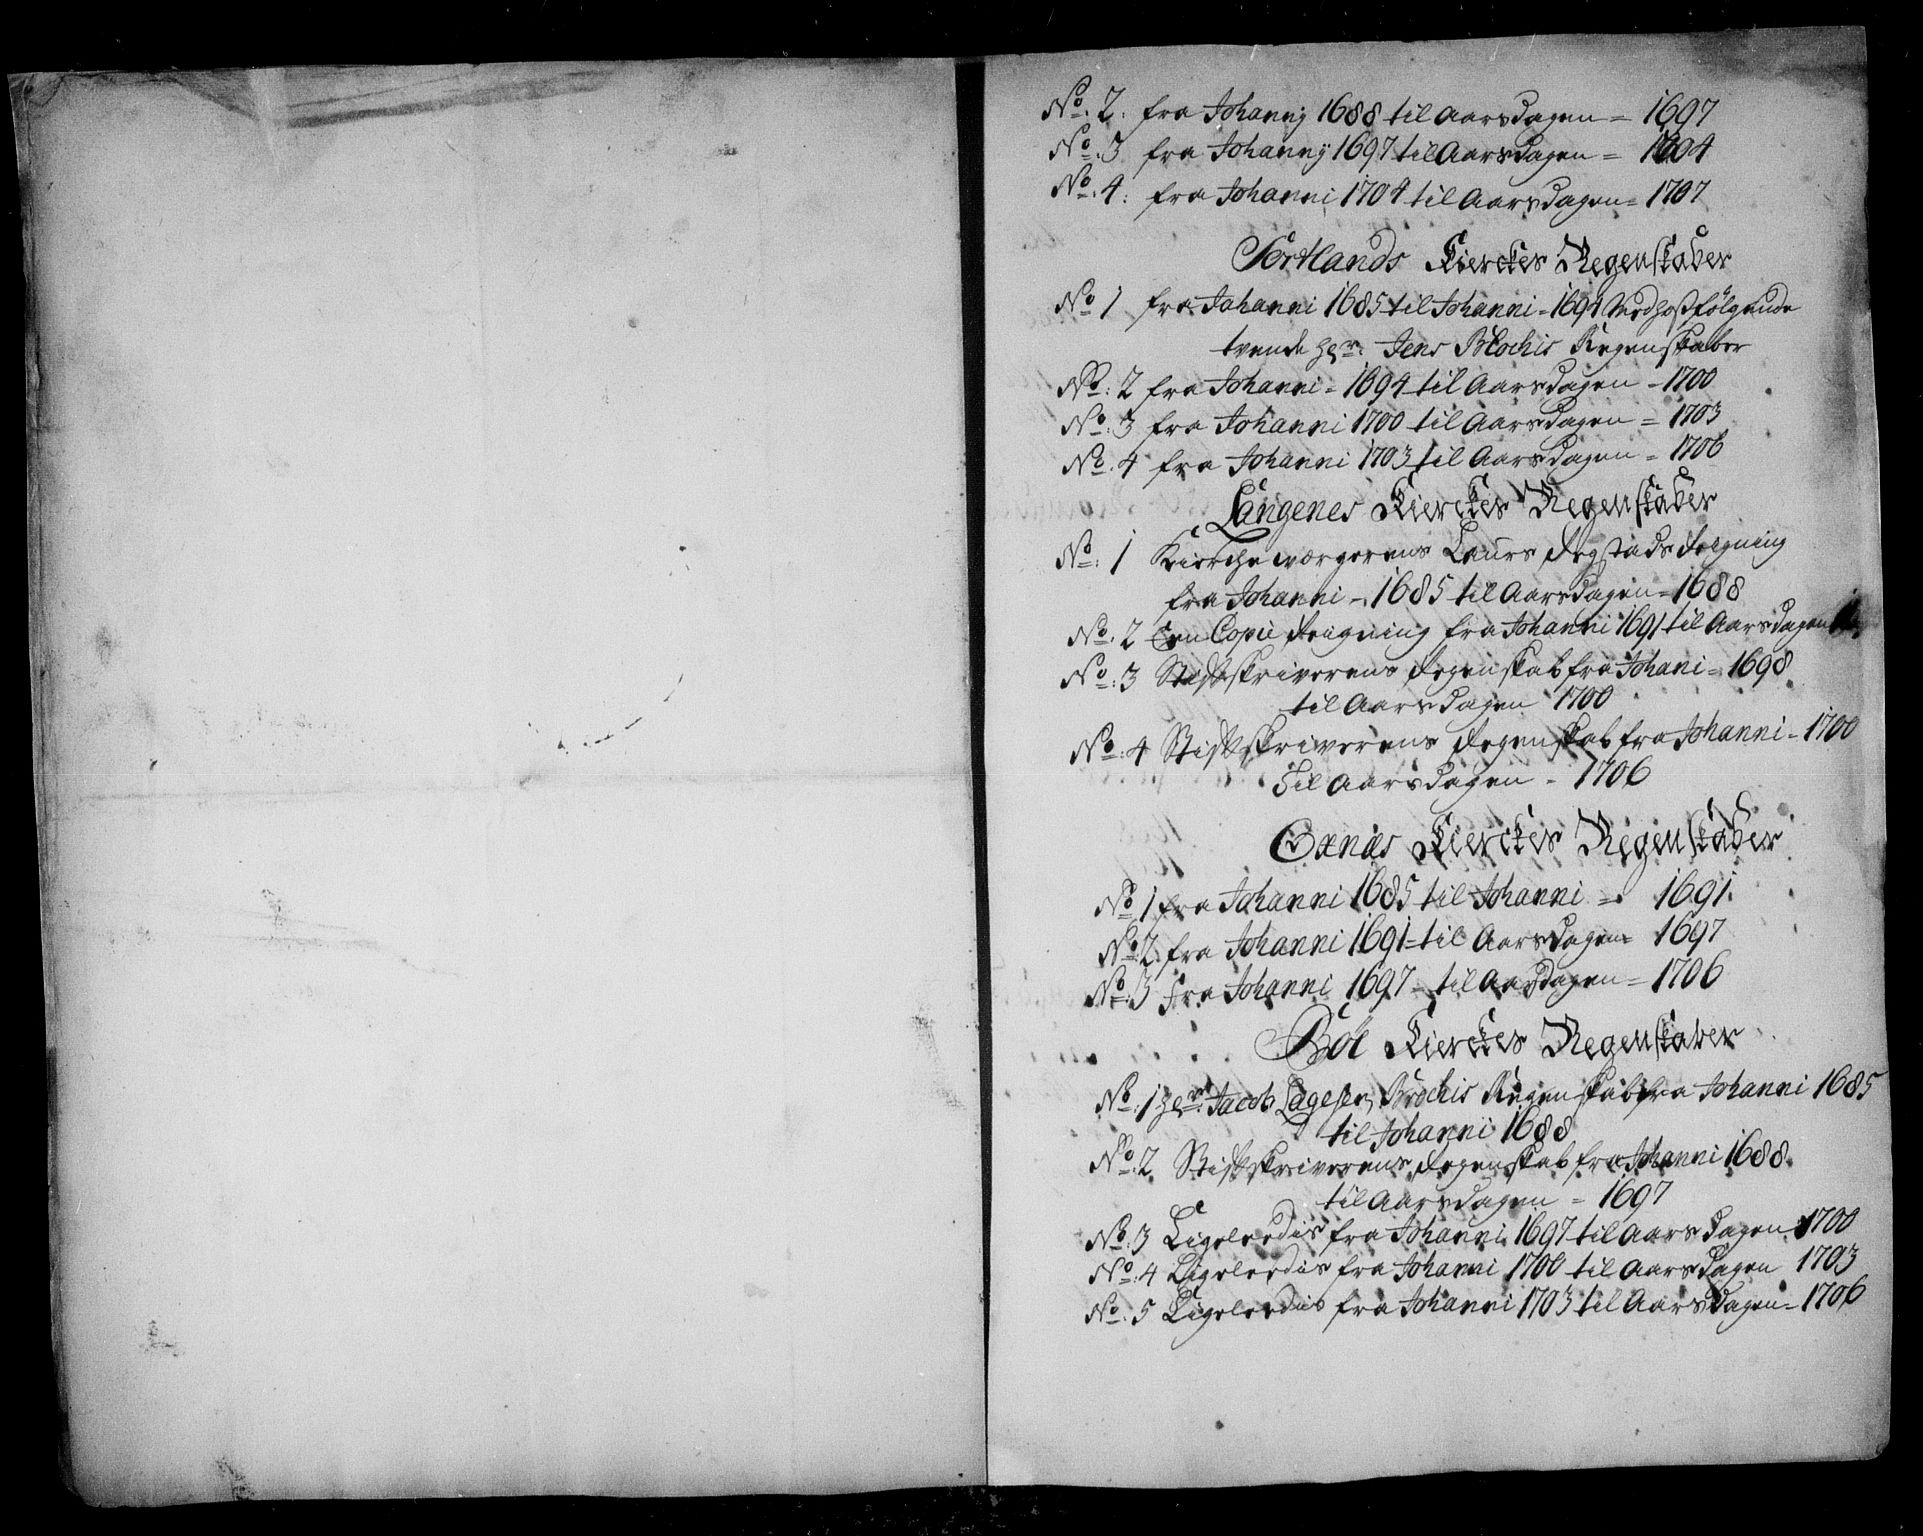 No. 2: fra Johannj 1688 til Aarsdagen = 1697
No. 3 fra Johannij 1697 til Aarsdagen = 1704
No. 4: fra Johanni 1704 til Aarsdagen = 1707
Sortlands Kierckes Regenskaber
No 1 fra Johanni 1685 til Johanni = 1694 Vedhostfølgende
tvende Her: Jens Blochis Regenskaber
No: 2 fra Johanni = 1694 til Aarsdagen = 1700
No: 3 fra Johanni 1700 til Aarsdagen = 1703
No. 4 fra Johanni 1703 til Aarsdagen = 1706
Langenes Kierckes Regenskaber
No: 1 Kiercheværgerens Laurs Regning
fra Johanni = 1685 til Aarsdagen = 1688
No. 2 Een Copie Reigning fra Johanni 1691 til Aarsdagen
No: 3 Stiftskriverens Regenskab fra Johani = 1698
til Aarsdagen 1700
No: 4 Stiftskriverens Regenskab fra Johanni = 1700
Til Aarsdagen = 1706
Oxnæs Kierckes Regenskaber
No 1 fra Johanni 1685 til Johanni = 1691
No: 2 fra Johanni 1691 til Aarsdagen = 1697
No: 3 Fra Johanni 1697 til Aarsdagen = 1706
Bøe Kierckes Regenskaber
No: 1 Her: Jacob Lagesen Brochis Regenskab fra Johanni 1685
til Johanni 1688
No: 2 Stiftskriverens Regenskab fra Johanni 1688
til Aarsdagen = 1697
No: 3 Ligeleedis fra Johanni 1697 til Aarsdagen 1700
No: 4 Ligeleedis fra Johanni 1700 til Aarsdagen 1703
No: 5 Ligeleedis fra Johanni 1703 til Aarsdagen = 1706